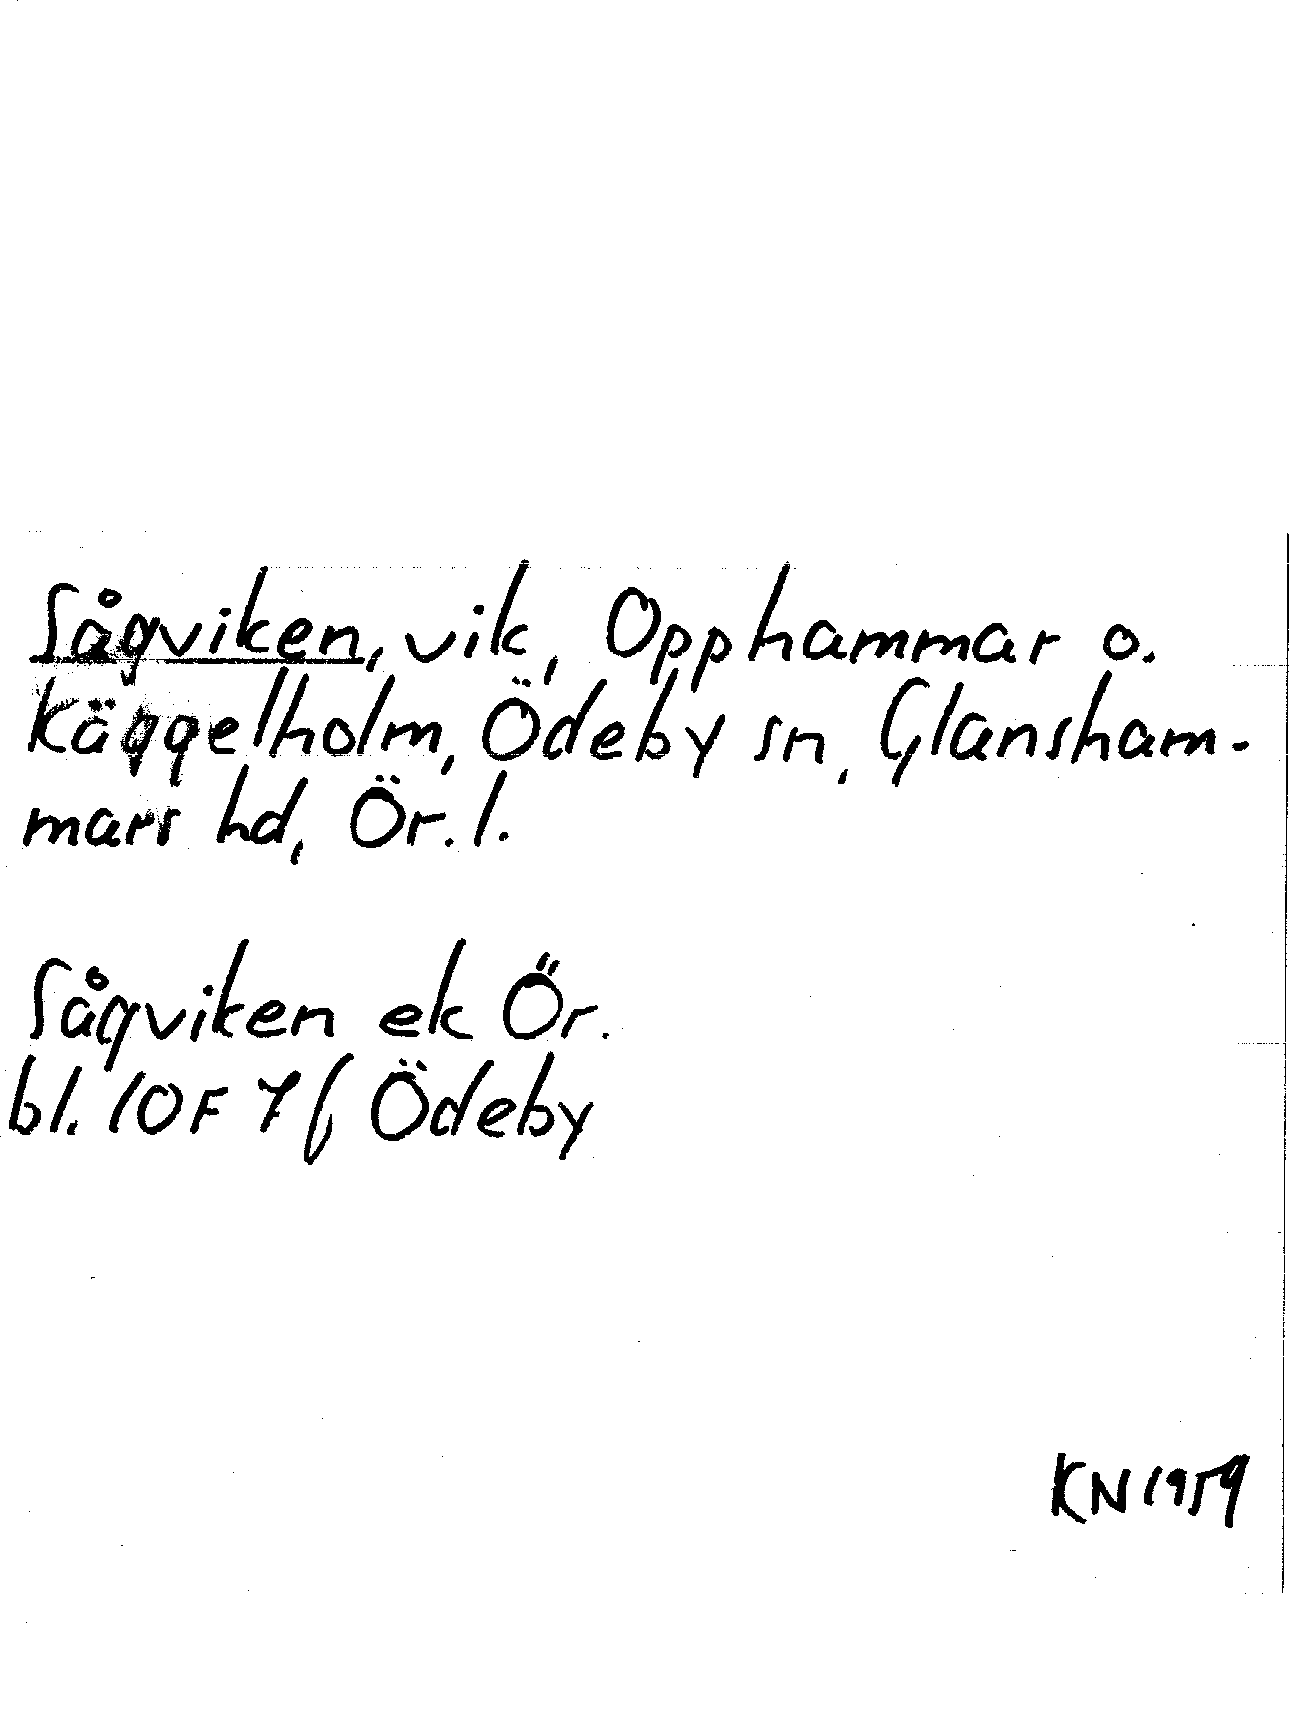 Sågviken, vik, Opphammar o.
Käggelholm, Ödeby sn, Glansham-
mars hd, Ör. l.
Sågviken ek Ör.
bl. 10F 7f, Ödeby
KN 1959